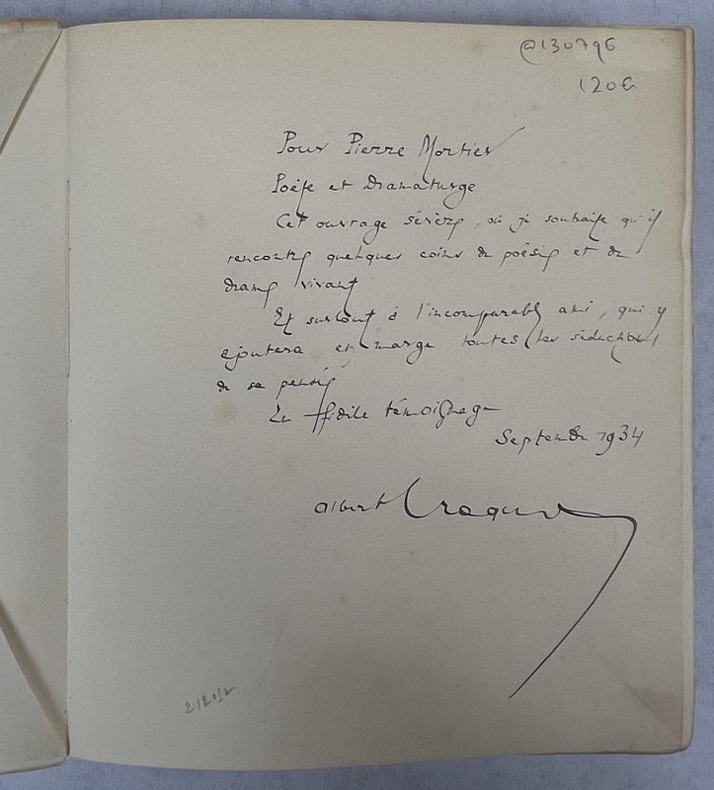 @130796
120€
Pour Pierre Mortier
Poète et Dramaturge
Cet ouvrage sévère, où je souhaite qu'il
rencontre quelques coins de poésie et de
drame vivant
Et surtout à l'incomparable ami, qui y
ajoutera, en marge, toutes les séductions
de sa pensée
En fidèle témoignage
Septembre 1934
Albert